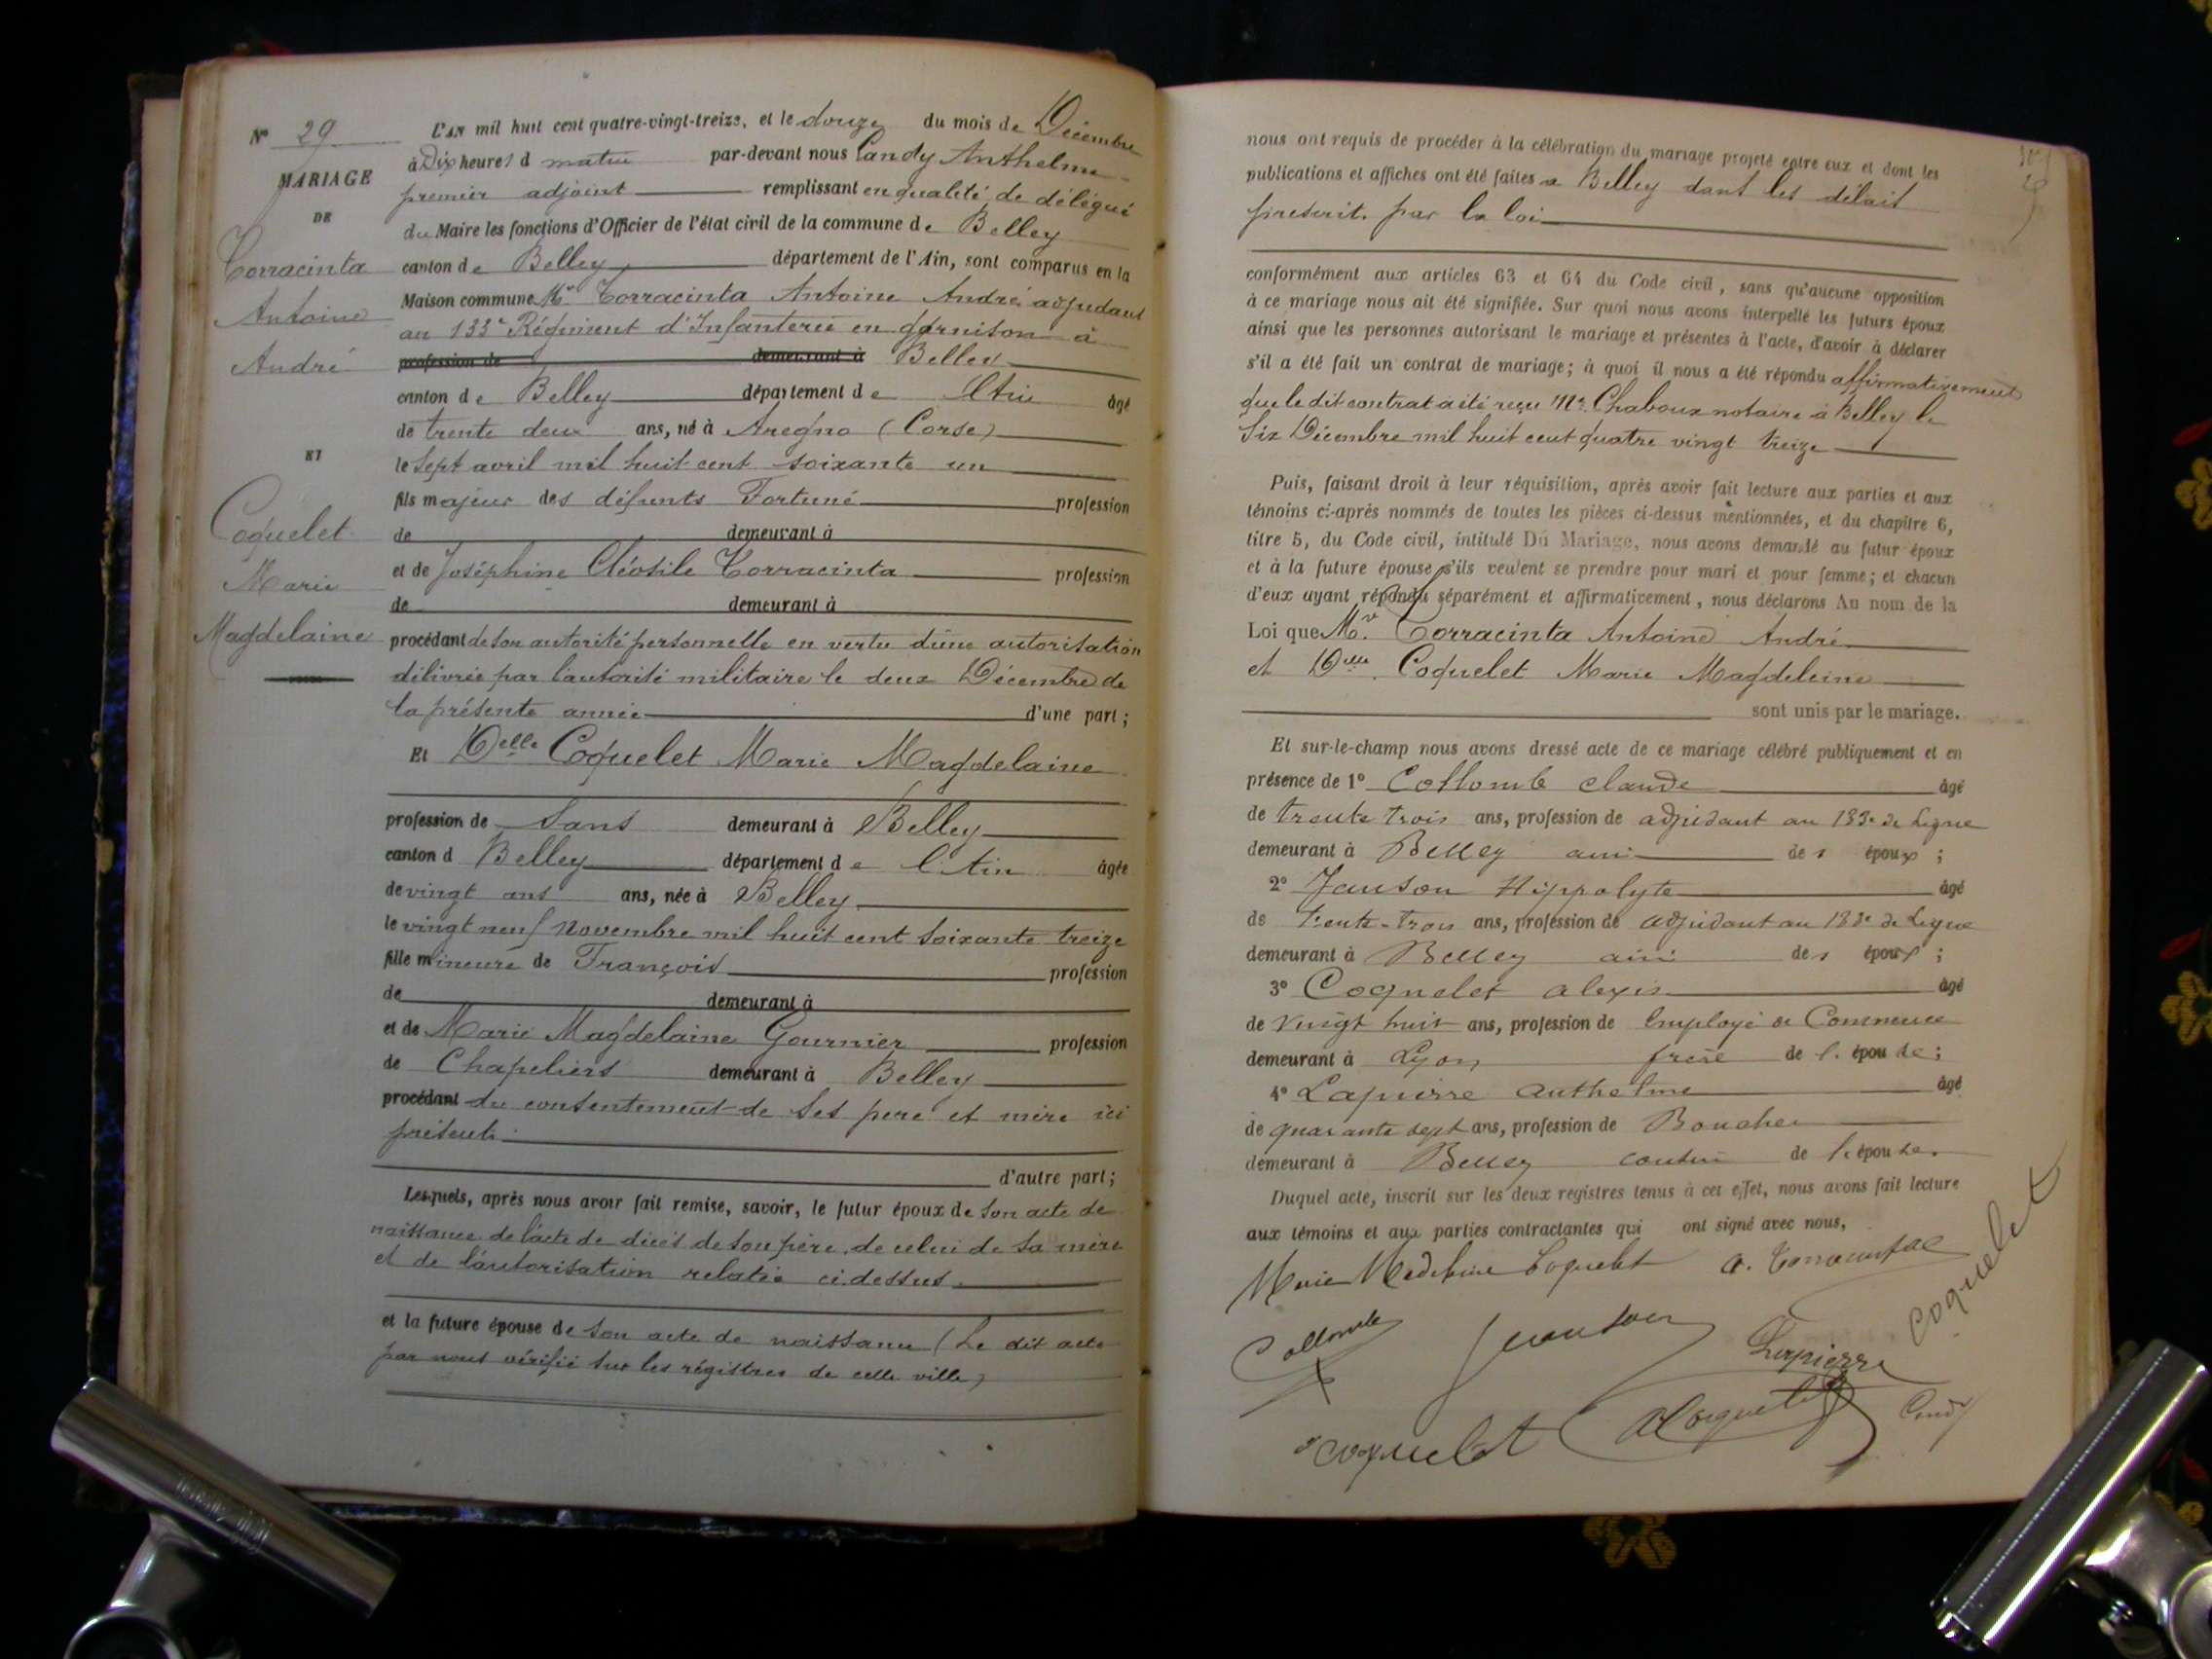 N° 29
MARIAGE
DE
Torracinta
Antoine
André
ET
Coquelet
Marie
Magdelaine
L'AN mil huit cent quatre-vingt-treize, et le douze du mois de Décembre
à Dix heures d matin par-devant nous Candy Anthelme
premier adjoint remplissant en qualité de délégué
du Maire les fonctions d'Officier de l'état civil de la commune de Belley
canton de Belley département de l'Ain, sont comparus en la
Maison commune Mr Torracinta Antoine André adjudant
au 133e Régiment d'Infanterie en garnison à
profession de demeurant à Belley
canton de Belley département de l'Ain âgé
de trente deux ans, né à Aregno (Corse)
le sept avril mil huit cent soixante un
fils majeur des défunts Fortuné profession
de demeurant à
et de Joséphine Cléotile Torracinta profession
de demeurant à
procédant de son autorité personnelle en vertu d'une autorisation
délivrée par l'autorité militaire le deux Décembre de
la présente année d'une part;
Et Delle Coquelet Marie Magdelaine
profession de Sans demeurant à Belley
canton d Belley département de l'Ain âgée
de vingt ans ans, née à Belley
le vingt neuf Novembre mil huit cent soixante treize
fille mineure de François profession
de demeurant à
et de Marie Magdelaine Gournier profession
de Chapeliers demeurant à Belley
procédant du consentement de ses pere et mère ici
présents
d'autre part;
Lesquels, après nous avoir fait remise, savoir, le futur époux de son acte de
naissance de l'acte de décès de son père, de celui de sa mère
et de l'autorisation relatée ci-dessus.
et la future épouse de son acte de naissance (Le dit acte
par nous vérifié sur les régistres de cette ville)
nous ont requis de procéder à la célébration du mariage projeté entre eux et dont les
publications et affiches ont été faites à Belley dans les délais
prescrit. par la loi
conformément aux articles 63 et 64 du Code civil, sans qu'aucune opposition
à ce mariage nous ait été signifiée. Sur quoi nous avons interpellé les futurs époux
ainsi que les personnes autorisant le mariage et présentes à l'acte, d'avoir à déclarer
s'il a été fait un contrat de mariage; à quoi il nous a été répondu affirmativement
que le dit contrat a été reçu Me. Chaboux notaire à Belley le
Six Décembre mil huit cent quatre vingt treize
Puis, faisant droit à leur réquisition, après avoir fait lecture aux parties et aux
témoins ci-après nommés de toutes les pièces ci-dessus mentionnées, et du chapitre 6,
titre 5, du Code civil, intitulé Du Mariage, nous avons demandé au futur époux
et à la future épouse s'ils veulent se prendre pour mari et pour femme; et chacun
d'eux ayant répondu séparément et affirmativement, nous déclarons Au nom de la
Loi que Mr. Torracinta Antoine André
et Delle. Coquelet Marie Magdeleine
sont unis par le mariage.
Et sur-le-champ nous avons dressé acte de ce mariage célébré publiquement et en
présence de 1° Collomb Claude âgé
de trente trois ans, profession de adjudant au 133e de Ligne
demeurant à Belley ami des époux;
2° Janson Hippolyte âgé
de trente-trois ans, profession de adjudant au 133e de Ligne
demeurant à Belley ami des époux;
3° Coquelet alexis âgé
de vingt huit ans, profession de Employé de Commerce
demeurant à Lyon frère de l'épouse;
4° Lapierre Anthelme âgé
de quarante sept ans, profession de Boucher
demeurant à Belley cousin de l'épouse.
Duquel acte, inscrit sur les deux registres tenus à cet effet, nous avons fait lecture
aux témoins et aux parties contractantes qui ont signé avec nous,
Marie Madeleine Coquelet
Coquelet
Collomb
Lapierre
Coquelet
Candy